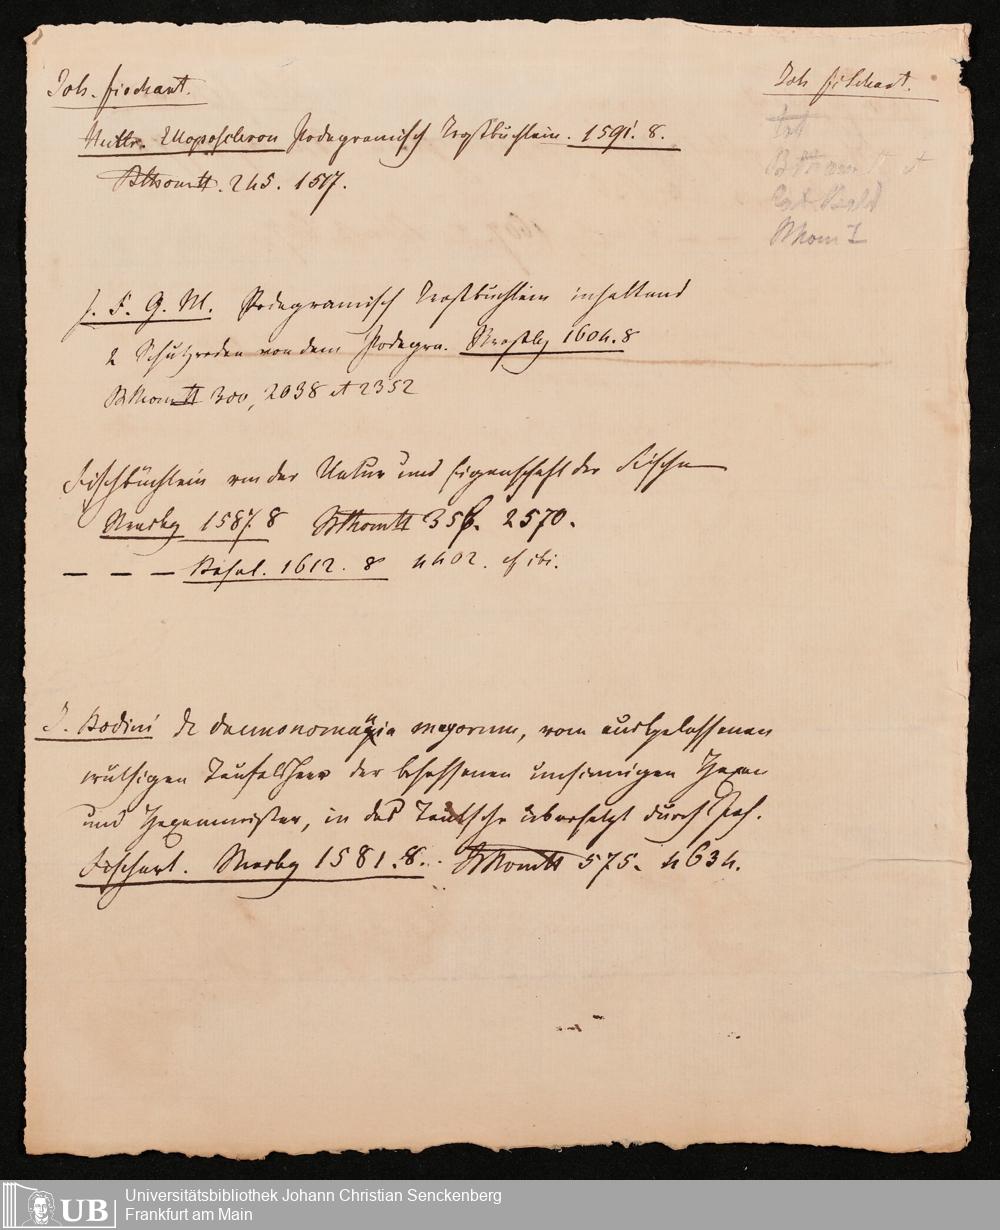 Joh. Fischart.
Joh Fischart.
Huttr. Ulopofcleron Podagramisch Trostbüchlein. 1591. 8.
Bthomtt. 245. 1517.
J. F. G. M. Podagramisch Trostbüchlein inhaltend
2 Schutzreden von dem Podagra. Strasbg 1604. 8
Bthomtt 300, 2038 et 2352
Fischbüchlein von der Natur und Eigenschaft der Fische
Strasbg 1587. 8 Bthomtt 358. 2570.
— — — Basel. 1612. 8 4402. ibi.
J. Bodini de daemonomagia magorum, vom ausgelassenen
wüthigen Teufelsheer der besessenen unsinnigen Hexen
und Hexenmeister, in das Teutsche übersetzt durch Joh.
Fischart. Strasbg 1581. 8. Bthomtt 575. 4634.
UB
Universitätsbibliothek Johann Christian Senckenberg
Frankfurt am Main